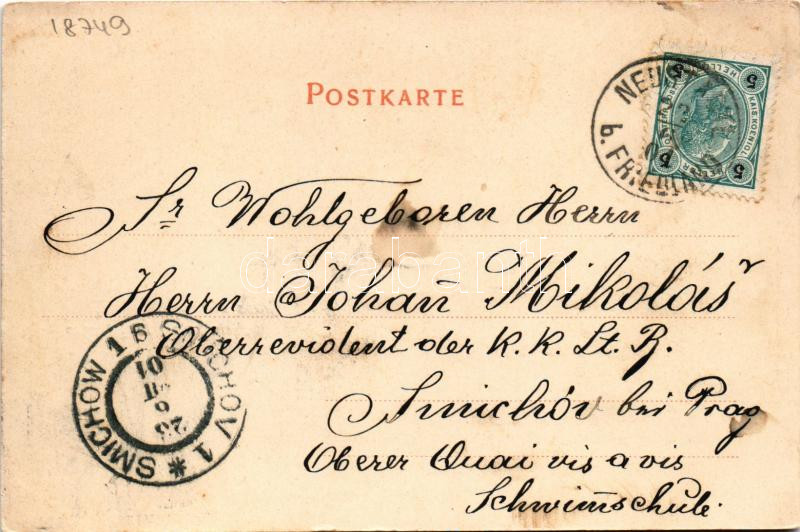 18749
POSTKARTE
NEUST
b. FRIEDL
5 HELLER 5
5 HELLER 5
Sr Wohlgeboren Herrn
Herrn Johañ Mikoláš
Oberrevident der K. K. St. B.
Smichóv bei Prag
Oberer Quai vis a vis
Schwim̃schule.
SMICHOW 1 * SMICHOV 1
23 6
01
darabanth